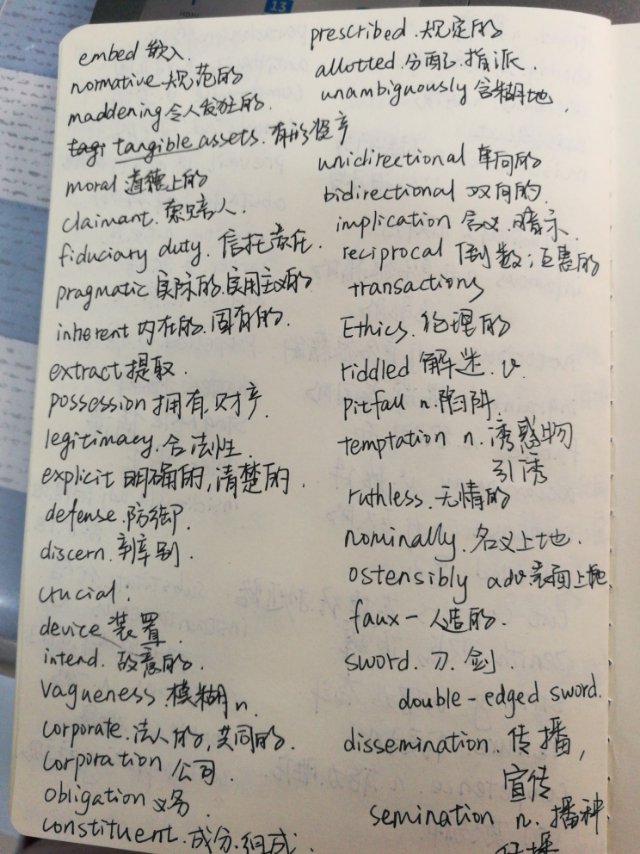 embed 嵌入
normative 规范的
maddening 令人发狂的.
tangible assets. 有形资产
moral 道德上的
claimant. 索赔人.
fiduciary duty. 信托责任.
pragmatic 实际的.实用主义的
inherent 内在的.固有的.
extract 提取.
possession 拥有.财产.
legitimacy. 合法性.
explicit 明确的,清楚的.
defense.防御.
discern. 辨别.
crucial:
device 装置.
intend. 故意的.
vagueness.模糊 n.
corporate.法人的,共同的.
corporation 公司.
obligation 义务
constituent.成分.组成.
prescribed.规定的
allotted.分配.指派.
unambiguously 含糊地.
unidirectional 单向的
bidirectional 双向的.
implication 含义.暗示.
reciprocal 倒数;互惠的
transactions
Ethics.伦理的
riddled 解迷.v.
pitfall n.陷阱.
temptation n.诱惑物
引诱
ruthless.无情的
nominally.名义上地.
ostensibly adv表面上地
faux- 人造的.
sword.刀.剑.
double-edged sword.
dissemination.传播,
宣传
semination n.播种